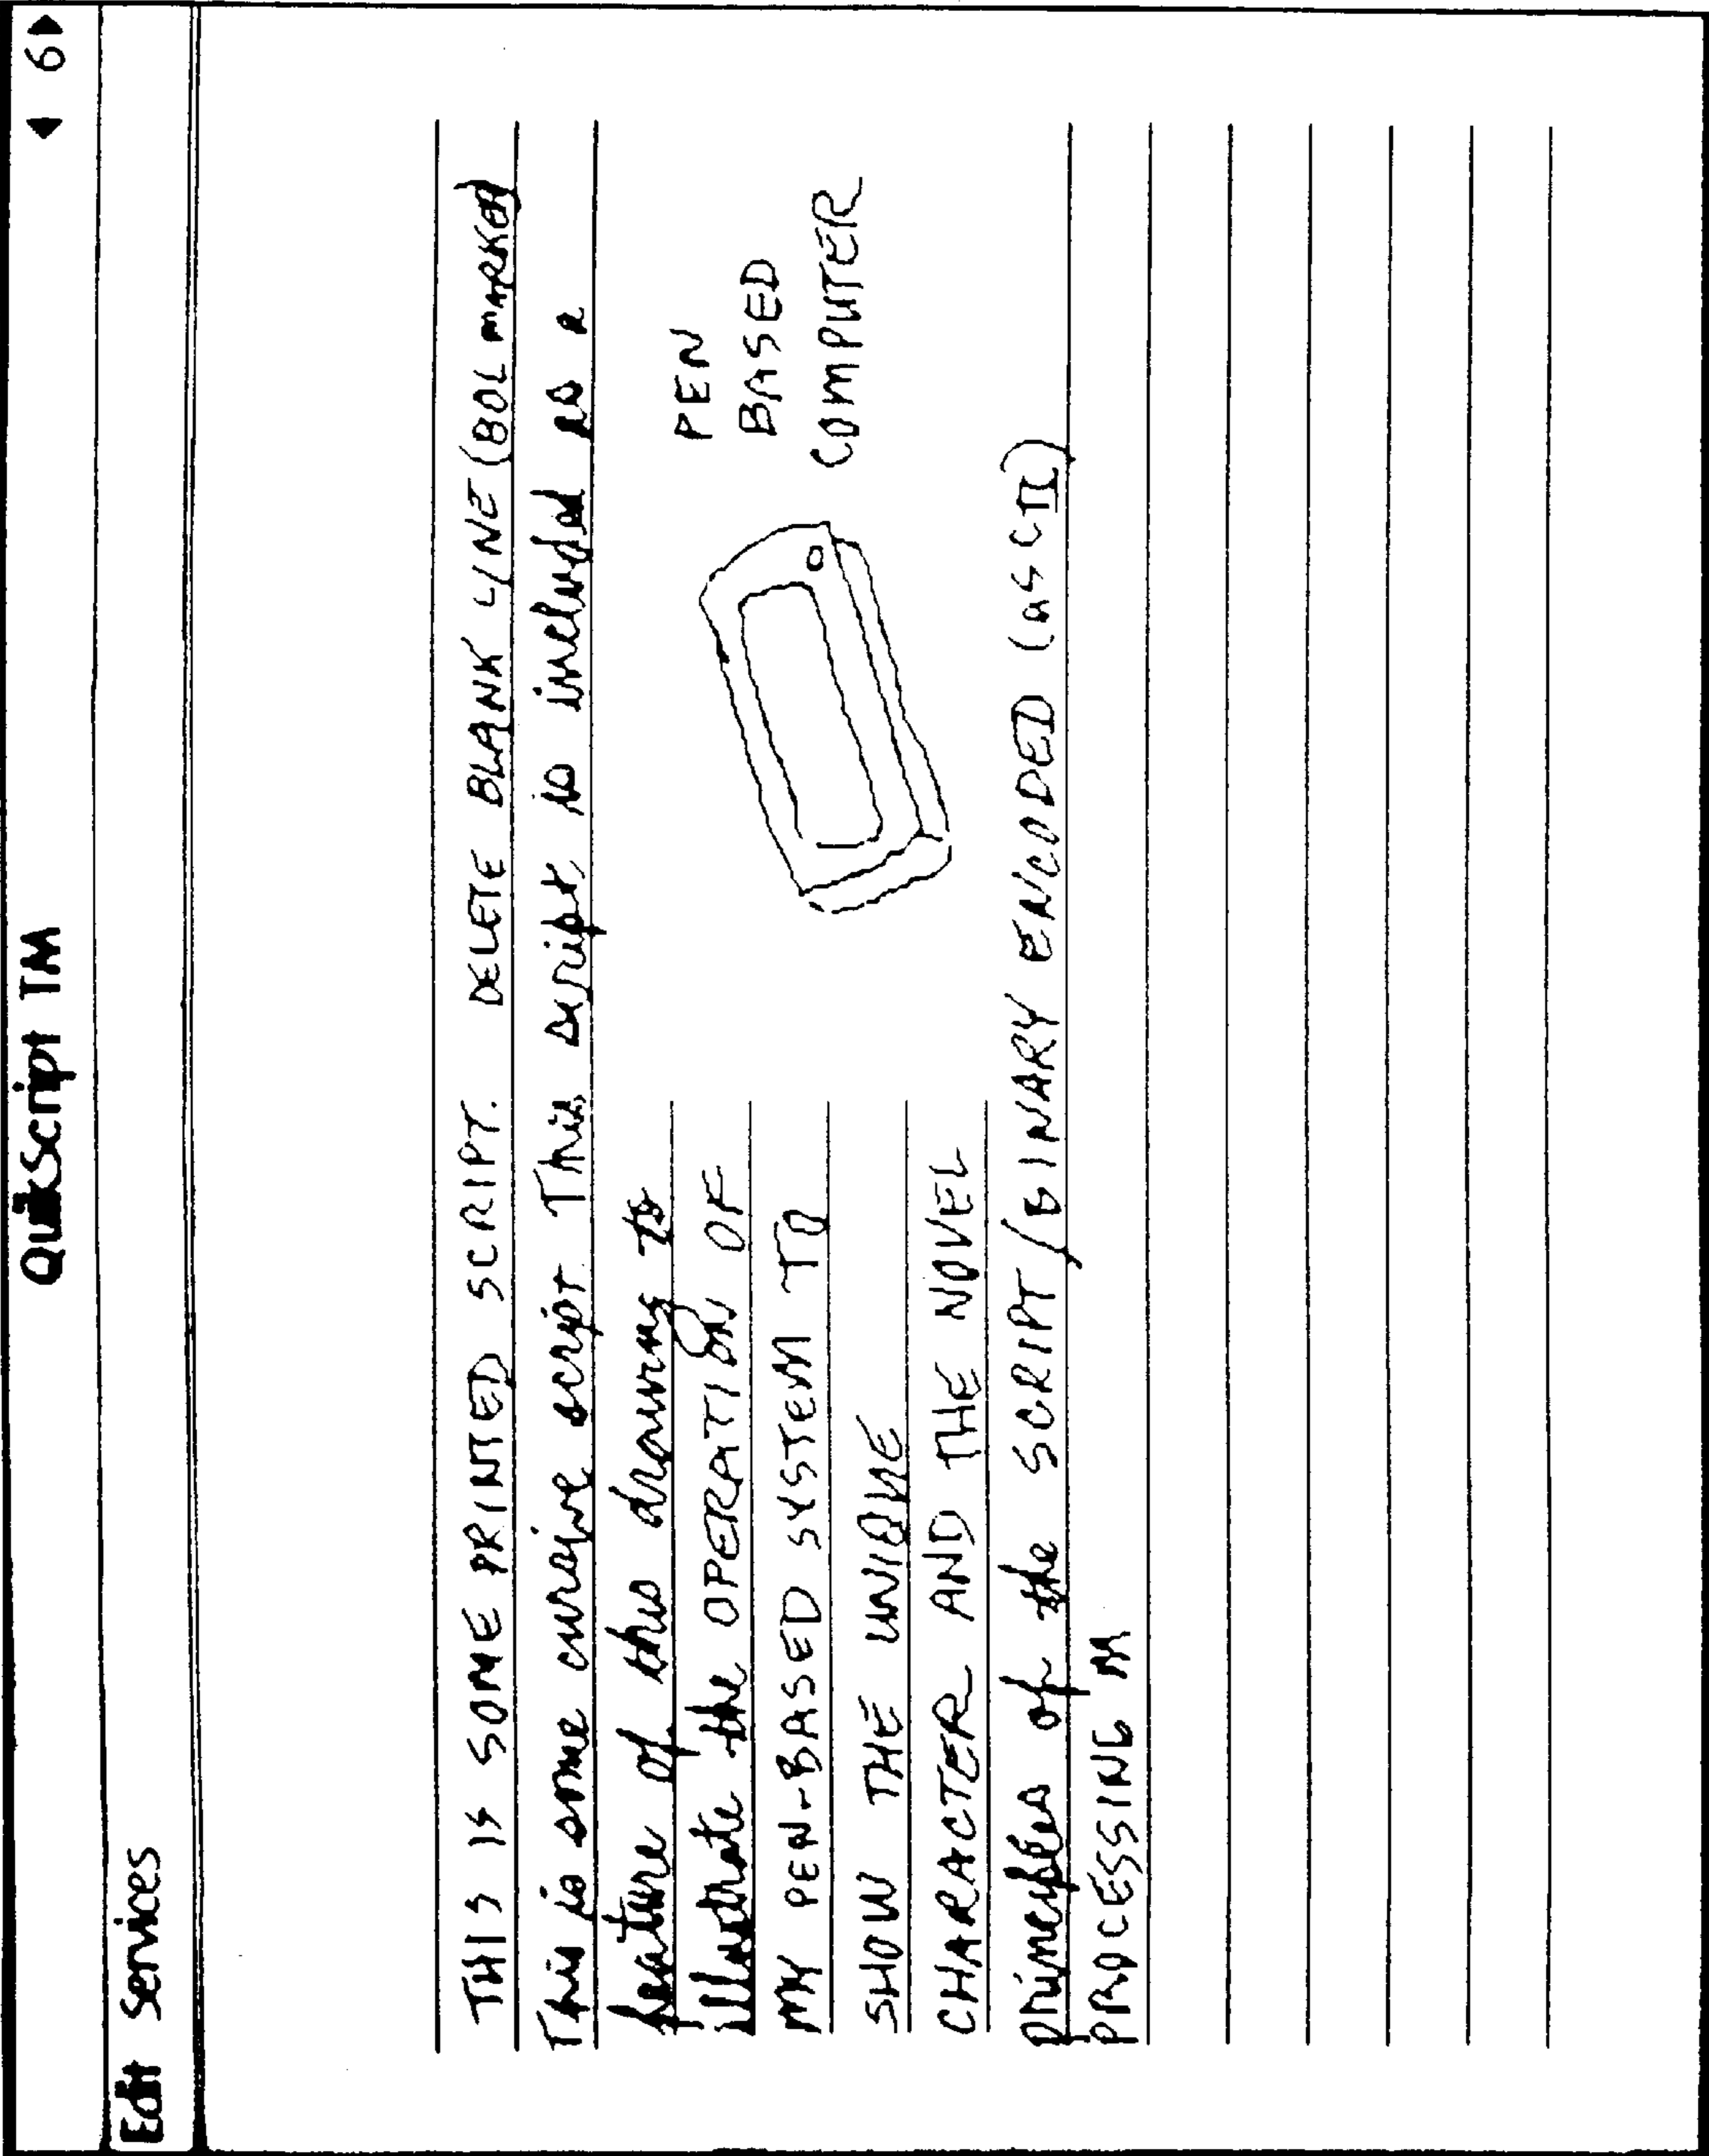 QuikScript TM
◀ 6▶
Edit Services
THIS IS SOME PRINTED SCRIPT. DELETE BLANK LINE (BOL MARKED)
This is some cursive script. This script is included as a
feature of this drawing to
illustrate the OPERATION OF
MY PEN-BASED SYSTEM TO
SHOW THE UNIQUE
CHARACTER AND THE NOVEL
principles of the SCRIPT/BINARY ENCODED (ASCII)
PROCESSING
PEN
BASED
COMPUTER